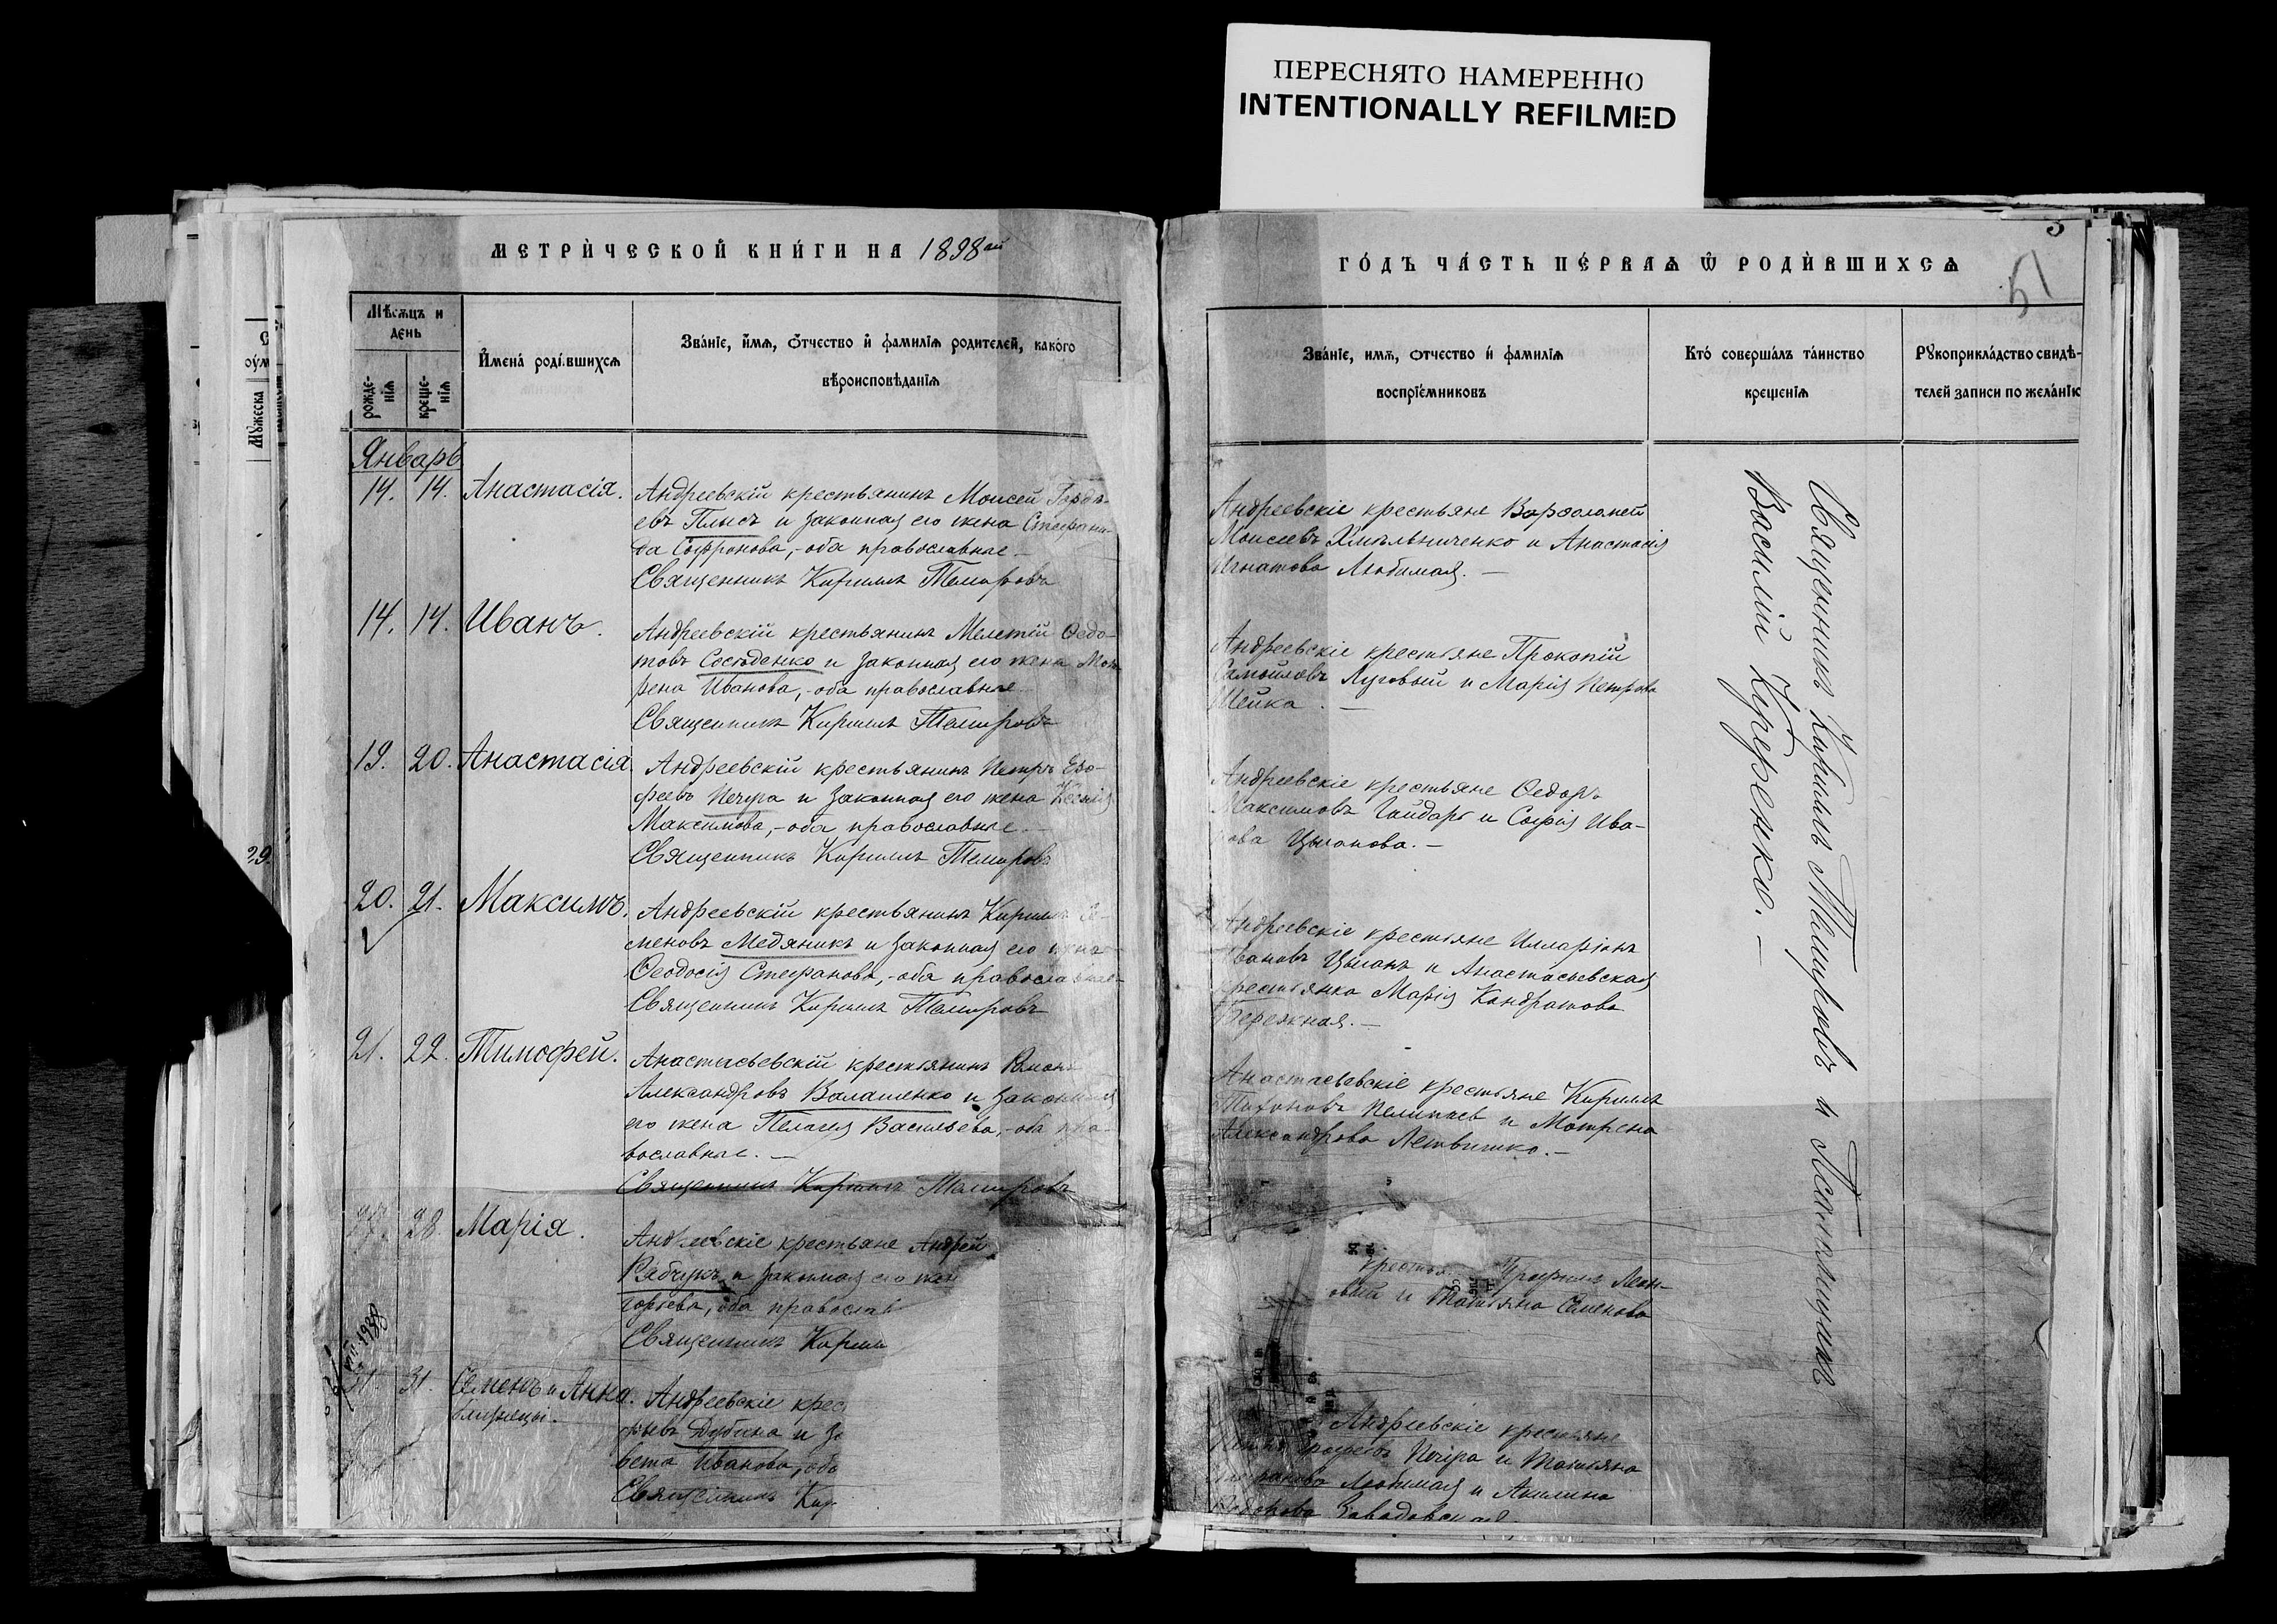 ПЕРЕСНЯТО НАМЕРЕННО
INTENTIONALLY REFILMED
МЕТРИ́ЧЕСКОЙ КНИ́ГИ НА 1898ый
Мѣсѧцъ и
день
рожде-
нїѧ
креще-
нїѧ
И҆мена̀ роди́вшихсѧ
Зва́нїе, и҆́мѧ, ѻ҆́тчество и҆ фамилїѧ родителей, како́го
вѣроисповѣданїѧ
Январь
14. 14. Анастасія.
Андреевскій крестьянинъ Моисей Гордѣ-
евъ Плысъ и законная его жена Стефани-
да Софронова, - оба православные. -
Священникъ Кириллъ Темировъ
14. 14. Иванъ.
Андреевскій крестьянинъ Мелетій Ѳедо-
товъ Сосѣденко и законная его жена
рена Иванова, - оба православные
Священникъ Кириллъ Темировъ
19. 20. Анастасія.
Андреевскій крестьянинъ Петръ Еро-
феевъ Печура и законная его жена Ксенія
Максимова, - оба православные. -
Священникъ Кириллъ Темировъ
20. 21. Максимъ.
Андреевскій крестьянинъ Кириллъ Се-
меновъ Медяникъ и законная его жена
Ѳеодосія Стефанова, - оба православные -
Священникъ Кириллъ Темировъ
21. 22. Тимофей.
Анастасьевскій крестьянинъ Романъ
Александровъ Валашенко и законная
его жена Пелагея Васильева, - оба пра-
вославные. -
Священникъ Кириллъ Темировъ
28. Марія.
Андреевскіе крестьяне Андрей
Рябчукъ и законная его жен
горьева, оба православ
Священникъ Кирил
31. Семенъ и Анна.
близнецы.
Андреевскіе крес
Дубина и за
вета Иванова, оба
Священникъ Кир
ГО́ДЪ ЧА́СТЬ ПЕ́РВАѦ Ѡ҆ РОДИ́ВШИХСѦ
3
51
Зва́нїе, имѧ, ѻтчество и҆ фамилїѧ
воспрїе́мниковъ
Кто̀ соверша́лъ та́инство
крещенїѧ
Рꙋкоприкла́дство свидѣ-
телей записи по жела́нїю
Андреевскіе крестьяне Варфоломей
Моисеевъ Хмѣльниченко и Анастасія
Игнатова Любимая. -
Андреевскіе крестьяне Прокопій
Самойловъ Луговый и Марія Петрова
Шейка. -
Андреевскіе крестьяне Ѳедоръ
Максимовъ Гайдаръ и Софія Ива-
нова Цыганова. -
Андреевскіе крестьяне Илларіонъ
Ивановъ Цыганъ и Анастасьевская
крестьянка Марія Кондратова
Бережная. -
Анастасьевскіе крестьяне Кириллъ
Тихоновъ и Матрена
Александрова Летвишко. -
Трофимъ Леон-
и Татьяна Семенова
Андреевскіе крестьяне
Печура и Татьяна
Любимая и Акилина
Заводовская
Священникъ Кириллъ Темировъ и Псаломщикъ
Василій Кереженко. -